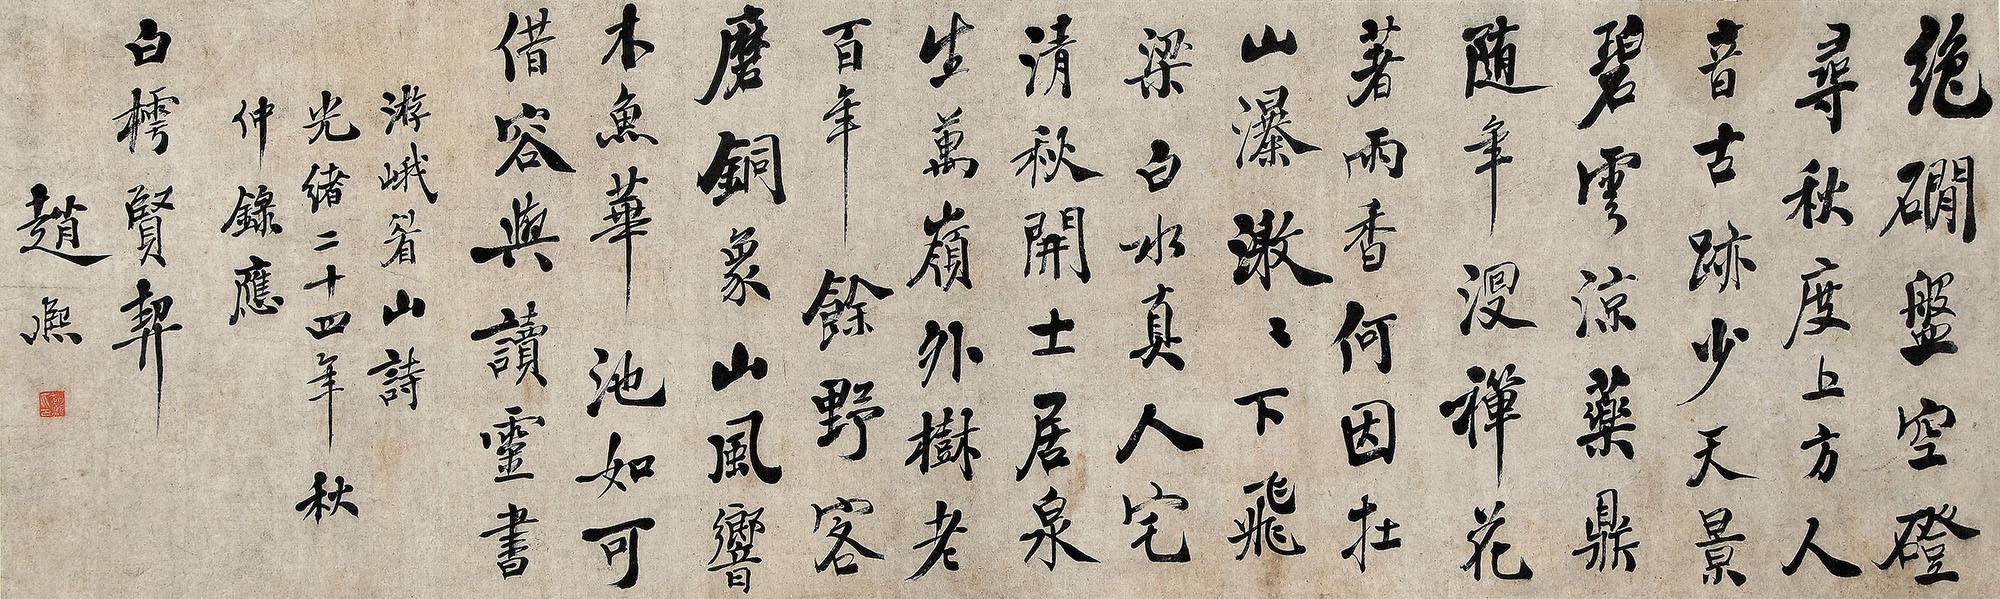 絶磵盤空磴
尋秋度上方人
音古跡少天景
碧雲涼藥鼎
随年漫禪花
著雨香何因杜
山瀑潎〻下飛
梁白水真人宅
清秋開士居泉
生萬嶺外樹老
百年餘野客
磨銅象山風響
木魚華池如可
借容與讀靈書
游峨眉山詩
光緒二十四年秋
仲錄應
白樗賢契
趙熙